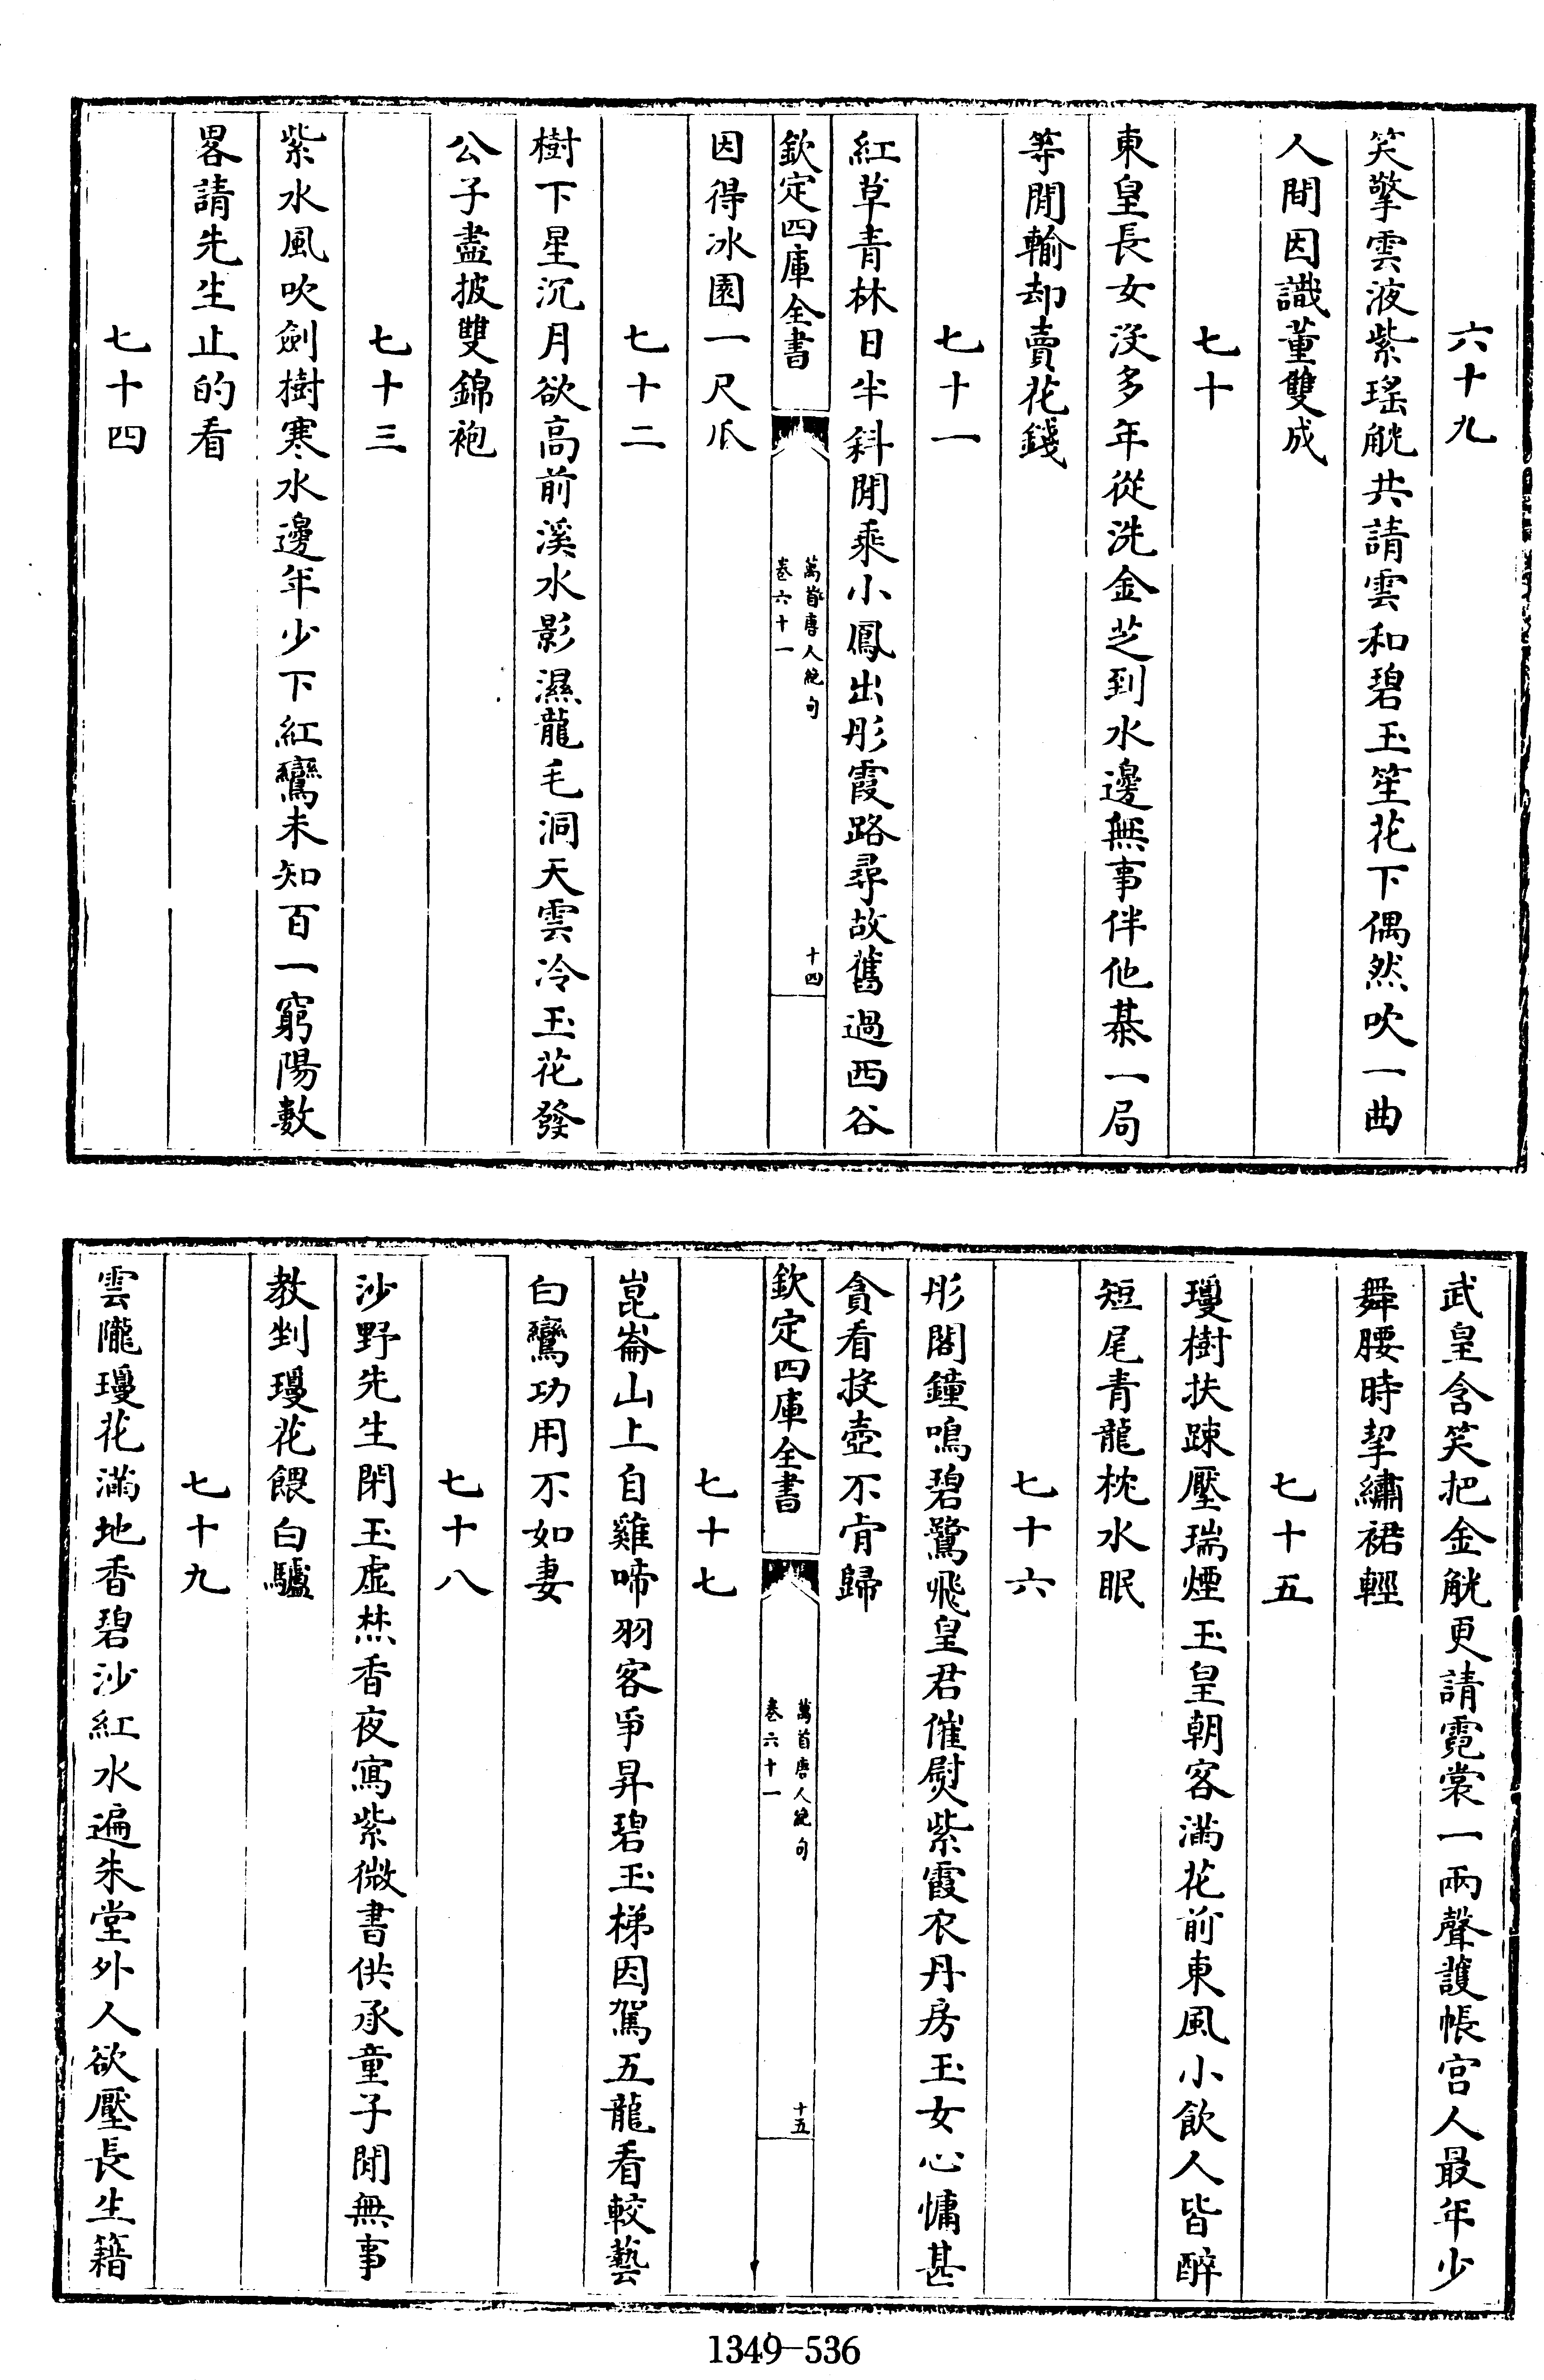 六十九
笑擎雲液紫瑤觥共請雲和碧玉笙花下偶然吹一曲
人間因識董雙成
七十
東皇長女沒多年從洗金芝到水邊無事伴他棊一局
等閒輸却賣花錢
七十一
紅草青林日半斜閒乘小鳳出彤霞路尋故舊過西谷
欽定四庫全書
萬首唐人絶句
卷六十一
十四
因得冰園一尺瓜
七十二
樹下星沉月欲高前溪水影濕龍毛洞天雲冷玉花發
公子盡披雙錦袍
七十三
紫水風吹劍樹寒水邊年少下紅鸞未知百一窮陽數
畧請先生止的看
七十四
武皇含笑把金觥更請霓裳一兩聲護帳宮人最年少
舞腰時挈繡裙輕
七十五
瓊樹扶踈壓瑞煙玉皇朝客滿花前東風小飲人皆醉
短尾青龍枕水眠
七十六
彤閣鐘鳴碧鷺飛皇君催熨紫霞衣丹房玉女心慵甚
貪看投壺不肯歸
欽定四庫全書
萬首唐人絶句
卷六十一
十五
七十七
崑崙山上自雞啼羽客爭昇碧玉梯因駕五龍看較藝
白鸞功用不如妻
七十八
沙野先生閉玉虛焚香夜寫紫微書供承童子閒無事
教剉瓊花餵白驢
七十九
雲隴瓊花滿地香碧沙紅水遍朱堂外人欲壓長生籍
1349-536